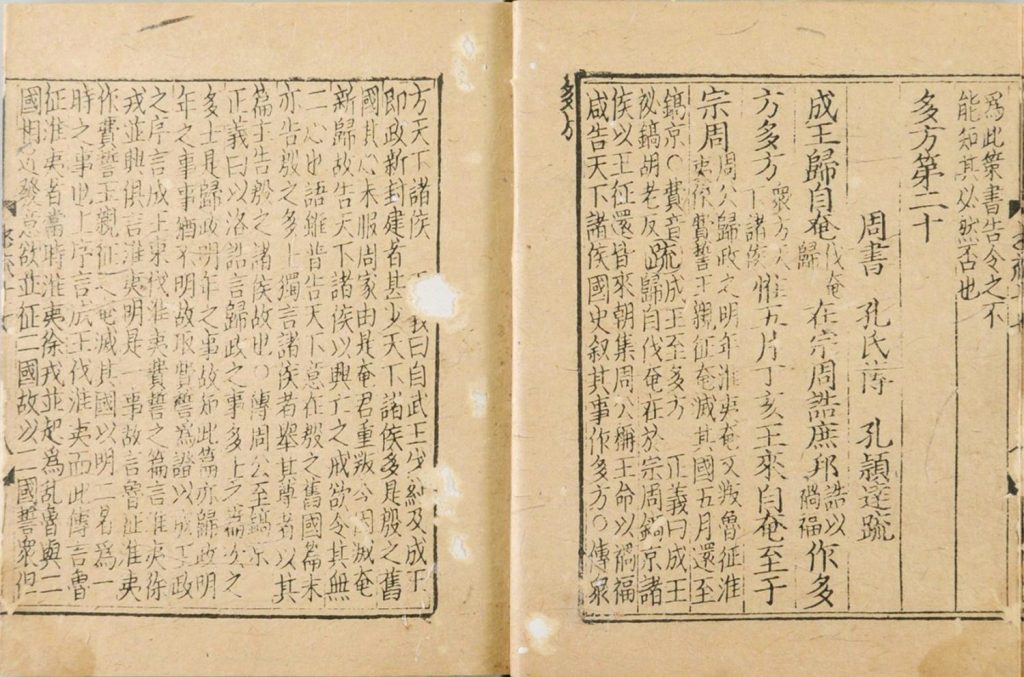 爲此策書告令之不
能知其必然否也
多方第二十
周書 孔氏傳 孔穎達疏
成王歸自奄伐奄歸在宗周誥庶邦誥以禍福作多
方多方衆方天下諸侯惟五月丁亥王來自奄至于
宗周周公歸政之明年淮夷奄又叛魯征淮
夷作費誓王親征奄滅其國五月還至
鎬京○費音
祕鎬胡老反疏成王至多方 正義曰成王
歸自伐奄在於宗周鎬京諸
侯以王征還皆來朝集周公稱王命以禍福
咸告天下諸侯國史叙其事作多方○傳衆
多方
方天下諸侯 正義曰自武王伐紂及成王
即政新封建者甚少天下諸侯多是殷之舊
國其心未服周家由是奄君重叛今因滅奄
新歸故告天下諸侯以興亡之戒欲令其無
二心也語雖普告天下意在殷之舊國篇末
亦告殷之多士獨言諸侯者舉其尊者以其
篇主告殷之諸侯故也○傳周公至鎬京
正義曰以洛誥言歸政之事多士之篇次之
多士是歸政明年之事故知此篇亦歸政明
年之事事猶不明故取費誓爲證以成王政
之序言成王東伐淮夷費誓之篇言淮夷徐
戎並興俱言淮夷明是一事故言魯征淮夷
作費誓王親征奄滅其國以明二者爲一
時之事也上序言成王伐淮夷而此傳言魯
征淮夷者當時淮夷徐戎並起爲亂魯與二
國相近發意欲並征二國故以二國誓衆但